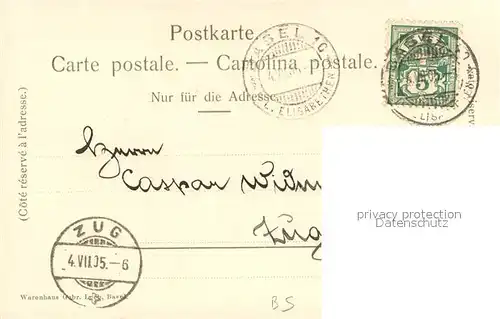 Postkarte.
Carte postale. — Cartolina postale.
Nur für die Adresse.
(Côté réservé à l'adresse.)
BASEL 10
ST. ELISABETHEN
BASEL 10
5
Herrn
Caspar
Zug
ZUG
4.VII.05.-6
Warenhaus Gebr. Loeb, Basel
BS
privacy protection
Datenschutz